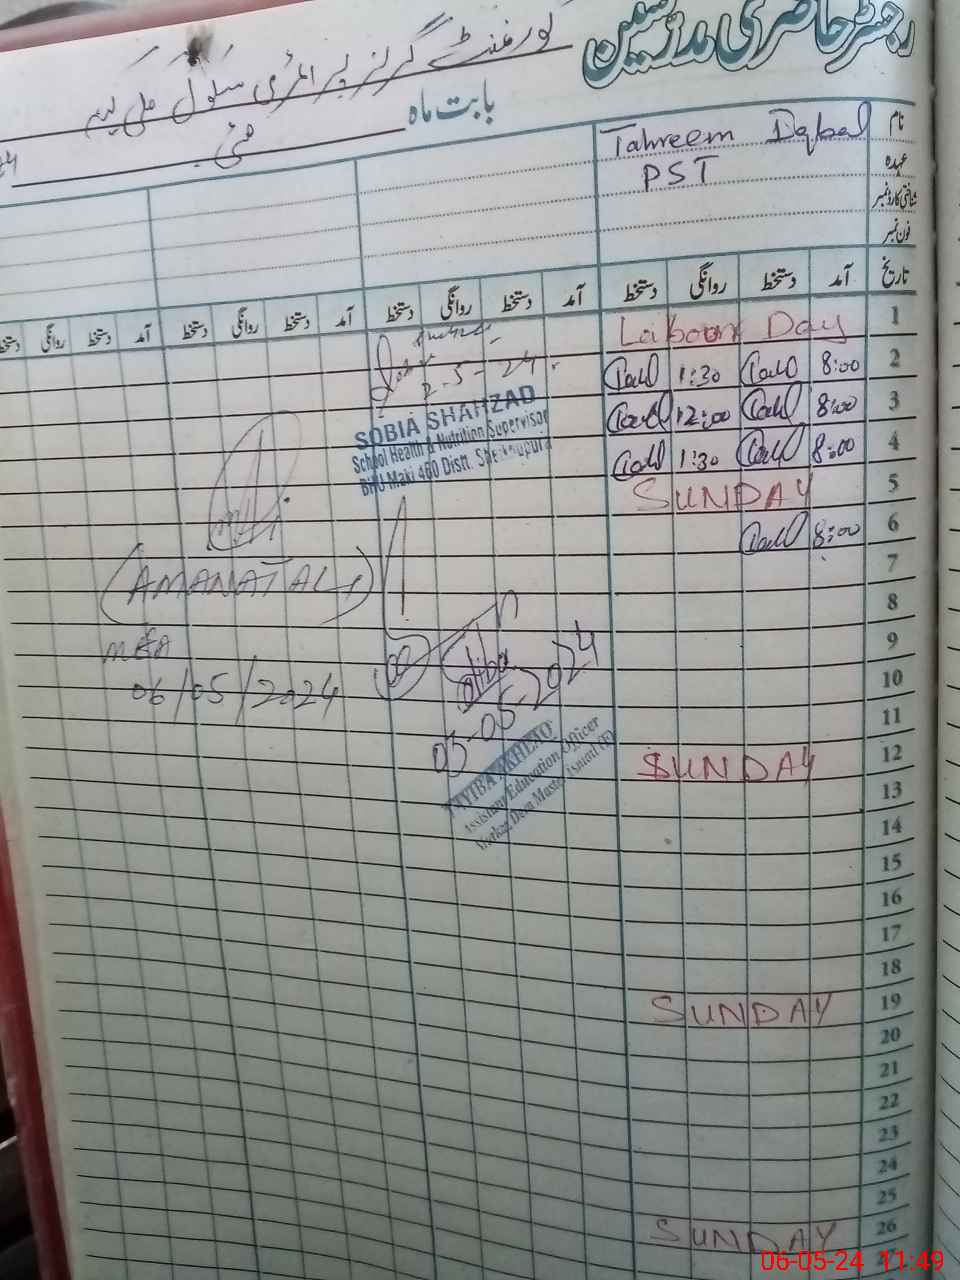 رجسٹر حاضری مدرسین
گورنمنٹ گرلز پرائمری سکول
بابت ماہ مئی
نام Tahreem Iqbal
عہدہ PST
شناختی کارڈ نمبر
فون نمبر
تاریخ آمد دستخط روانگی دستخط آمد دستخط روانگی دستخط آمد دستخط روانگی دستخط آمد دستخط روانگی دستخط
1 Laboour Day
2 8:00 1:30
2-5-24
3 8:00 12:00
SOBIA SHAHZAD
School Health & Nutrition Supervisor
BHU Maki 460 Distt. Sheikhupura
4 8:00 1:30
5 SUNDAY
6 8:00
7
(AMANAT ALI)
8
9
MEA
10
06/05/2024
11
03-05-2024
12 SUNDAY
TAYIBA AKHLAQ
Assistant Education Officer
Markaz Dera Master Ismail (F)
13
14
15
16
17
18
19 SUNDAY
20
21
22
23
24
25
26 SUNDAY
06-05-24 11:49